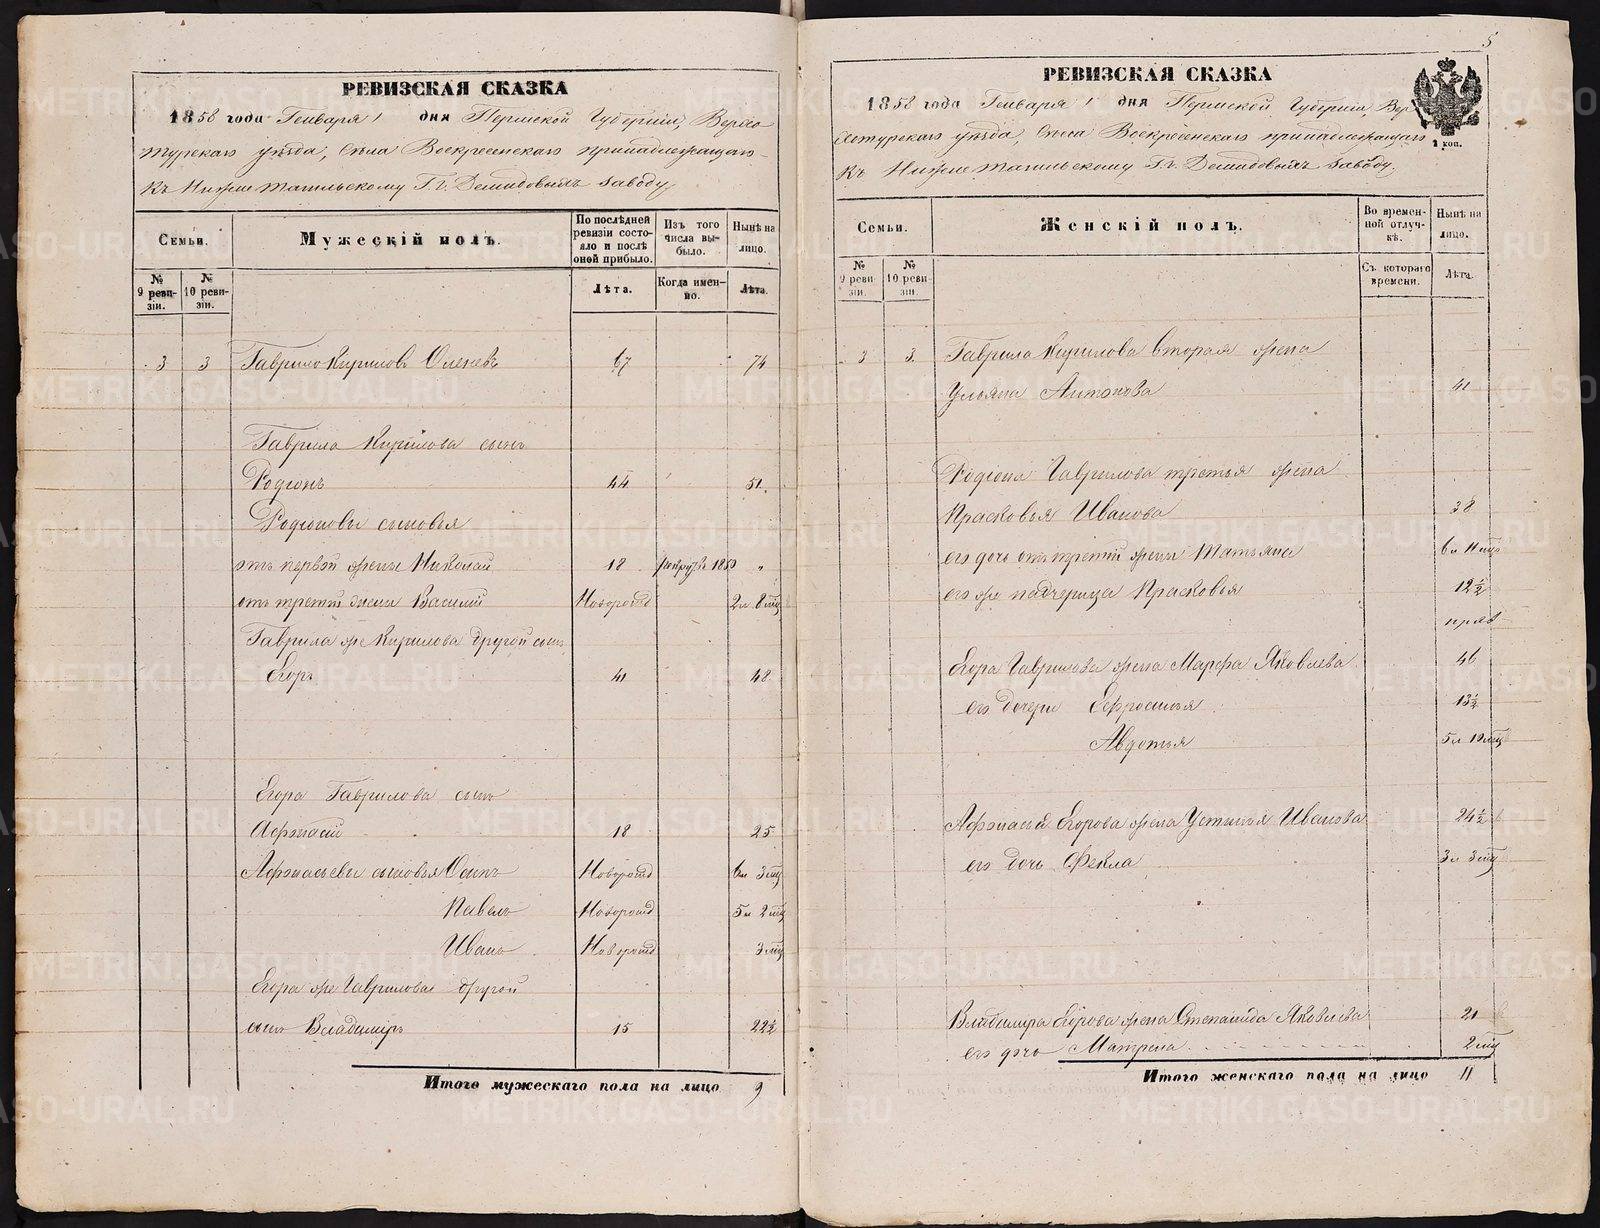 РЕВИЗСКАЯ СКАЗКА
1858 года Генваря 1 дня Пермской Губерніи, Верхо
турскаго уѣзда, Села Воскресенскаго принадлежащаго
Къ Нижне Тагильскому Гг. Демидовыхъ заводу,
Семьи.
Мужескій полъ.
По послѣдней ревизіи состояло и послѣ оной прибыло.
Изъ того числа выбыло.
Нынѣ на лицо.
№ 9 ревизіи.
№ 10 ревизіи.
Лѣта.
Когда именно.
Лѣта.
3 3 Гаврило Кириловъ Оленевъ 67 74
Гаврила Кирилова сынъ
Родіонъ 44 51
Родіоновы сыновья
отъ первой жены Николай 18 рекрутъ 1853 „
отъ третей жены Василій Новорожд 2 л 8 мцъ
Гаврила же Кирилова другой сынъ
Егоръ 41 48
Егора Гаврилова сынъ
Афонасій 18 25
Афонасьевы сыновья Осипъ Новорожд 6 л 3 мцъ
Павелъ Новорожд 5 л 2 мцъ
Иванъ Новорожд 3 мцъ
Егора же Гаврилова другой
сынъ Владимiръ 15 22½
Итого мужескаго пола на лицо 9
5
РЕВИЗСКАЯ СКАЗКА
1858 года Генваря 1 дня Пермской Губерніи, Вер
хотурскаго уѣзда, Села Воскресенскаго принадлежащаго
Къ Нижне Тагильскому Гг. Демидовыхъ заводу.
2 коп.
Семьи.
Женскій полъ.
Во временной отлучкѣ.
Нынѣ на лицо.
№ 9 ревизіи.
№ 10 ревизіи.
Съ котораго времени.
Лѣта.
3 3 Гаврила Кирилова вторая жена
Ульяна Антонова 41
Родіона Гаврилова третья жена
Прасковья Иванова 38
его дочь отъ третей жены Татьяна 6 л 11 мцъ
его же падчерица Прасковья 12½
Егора Гаврилова жена Марфа Яковлева 46
его дочери Ефросинья 13½
Авдотья 5 л 10 мцъ
Афонасья Егорова жена Устинья Иванова 24½
его дочь Фекла 3 л 3 мцъ
Владимiра Егорова жена Степанида Яковлева 21
его дочь Матрена 2 мцъ
Итого женскаго пола на лицо 11
METRIKI.GASO-URAL.RU